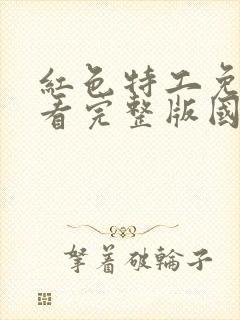 紅色特工免
看完整版國
拏着破輪子